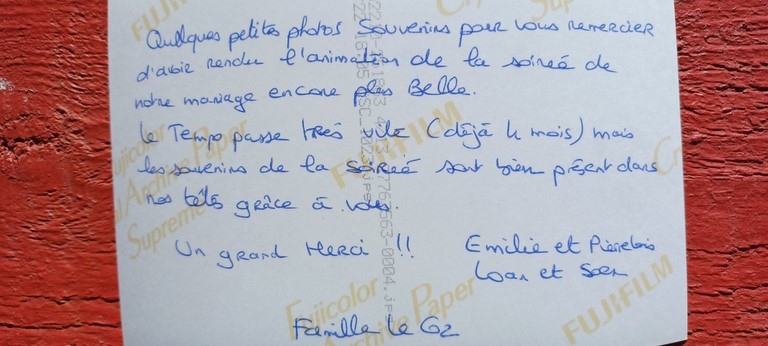 Quelques petites photos souvenirs pour vous remercier
d'avoir rendu l'animation de la soireé de
notre mariage encore plus Belle.
le Temps passe très vite (déjà 4 mois) mais
les souvenirs de la soireé sont bien présent dans
nos têtes grâce à vous.
Un grand Merci !! Emilie et Pierrelois
Loan et Soen
Famille Le Gz
FUJIFILM
Fujicolor
Crystal Archive Paper
Supreme
FUJIFILM
Fujicolor
Archive Paper
FUJIFILM